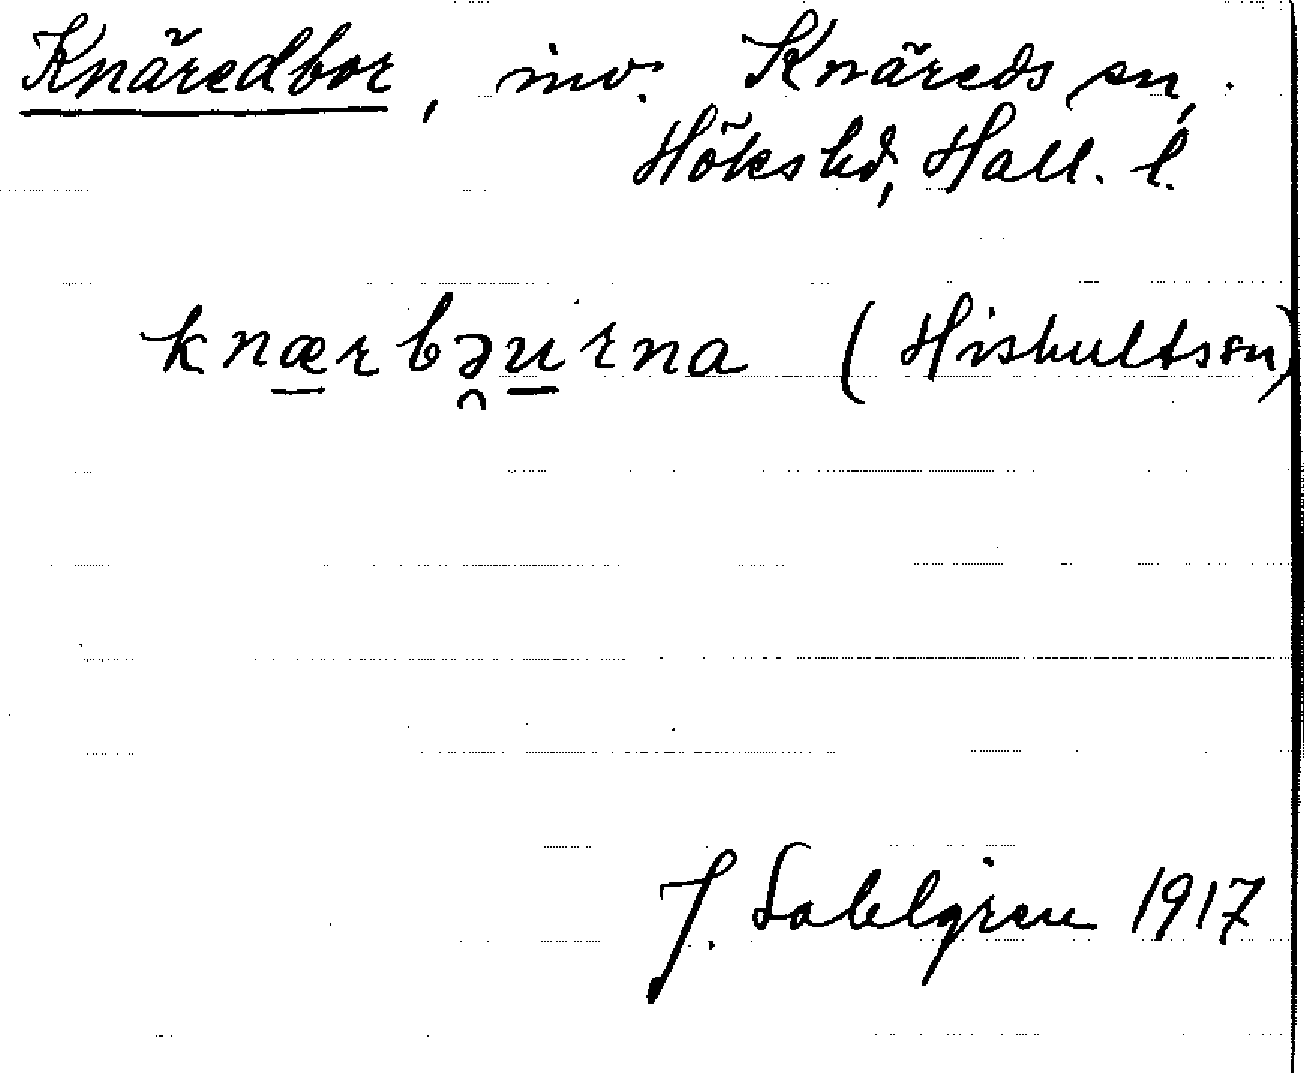 Knäredbor, inv. Knäreds sn,
Höks hd, Hall. l.
knæ̲rbə̯u̲rna (Hishultssn)
J. Sahlgren 1917